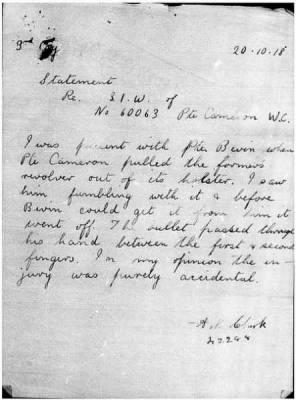 3rd
20-10-18
Statement
Re. S.I.W. of
No 60063 Pte Cameron W.C.
I was present with Pte Bevin when
Pte Cameron pulled the former's
revolver out of its holster. I saw
him fumbling with it & before
Bevin could get it from him it
went off. The bullet passed through
his hand between the first & second
fingers. In my opinion the in-
jury was purely accidental.
Clark